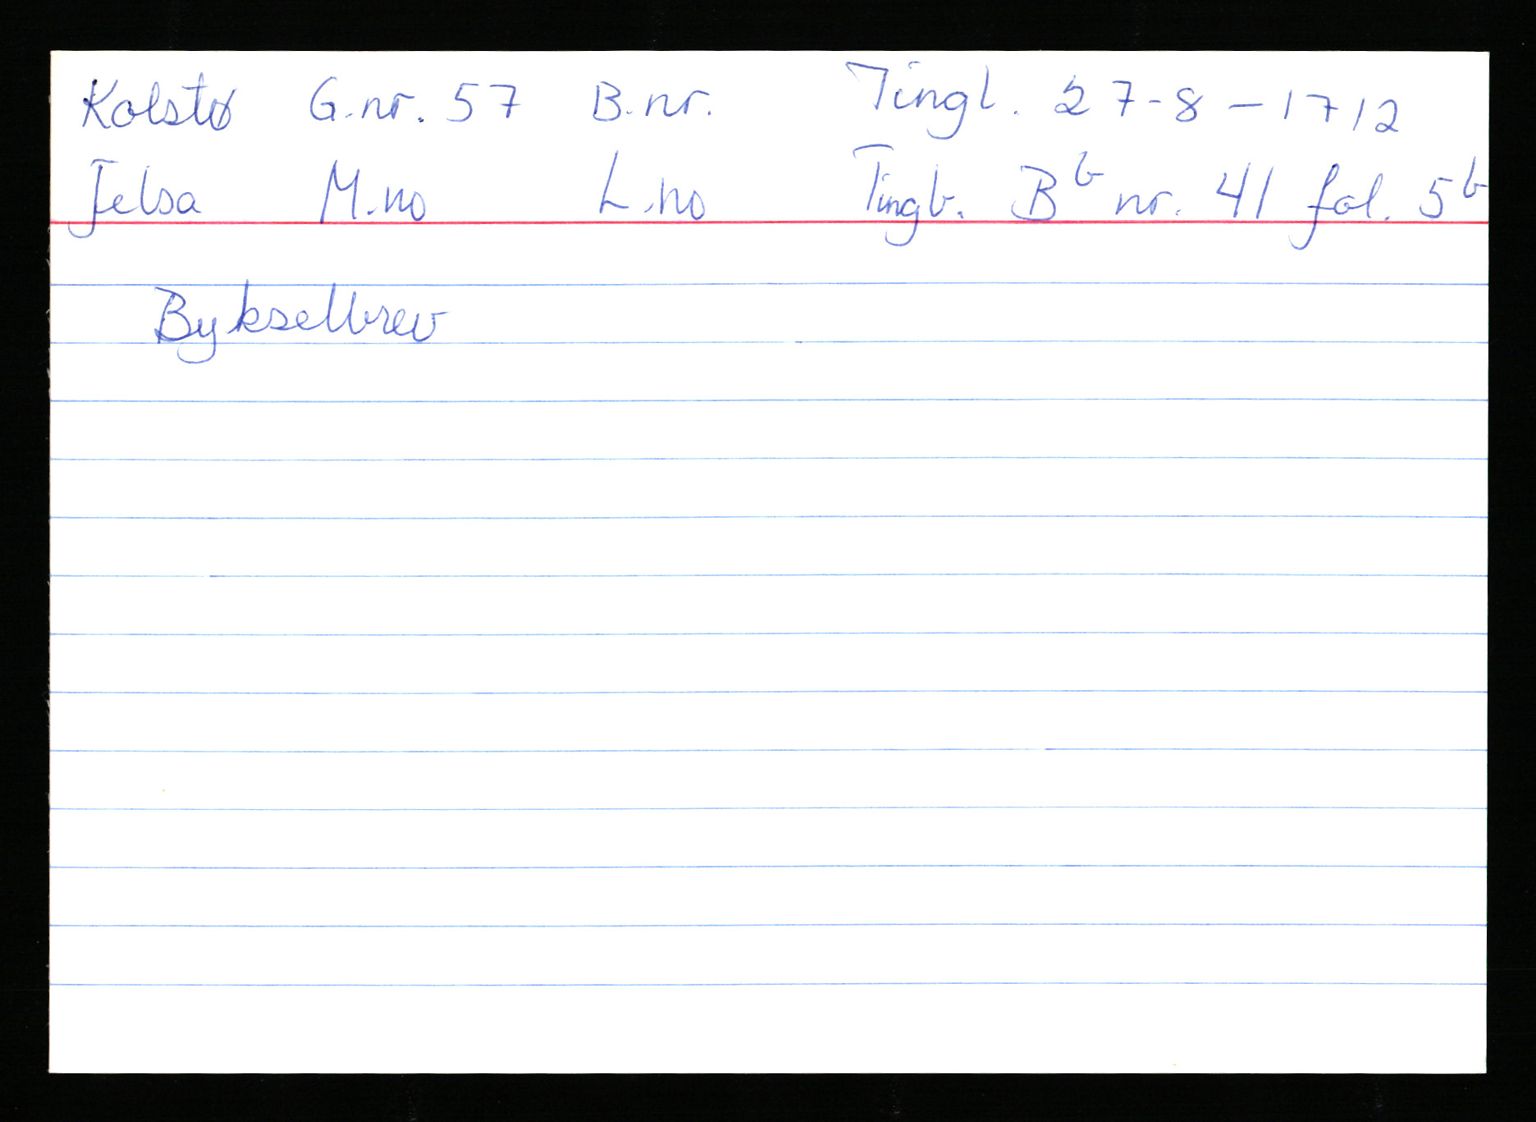 Kolstø G.nr. 57 B.nr. Tingl. 27-8-1712
Jelsa M.no L.no Tingb. Bb nr. 41 fol. 5b
Bykselbrev